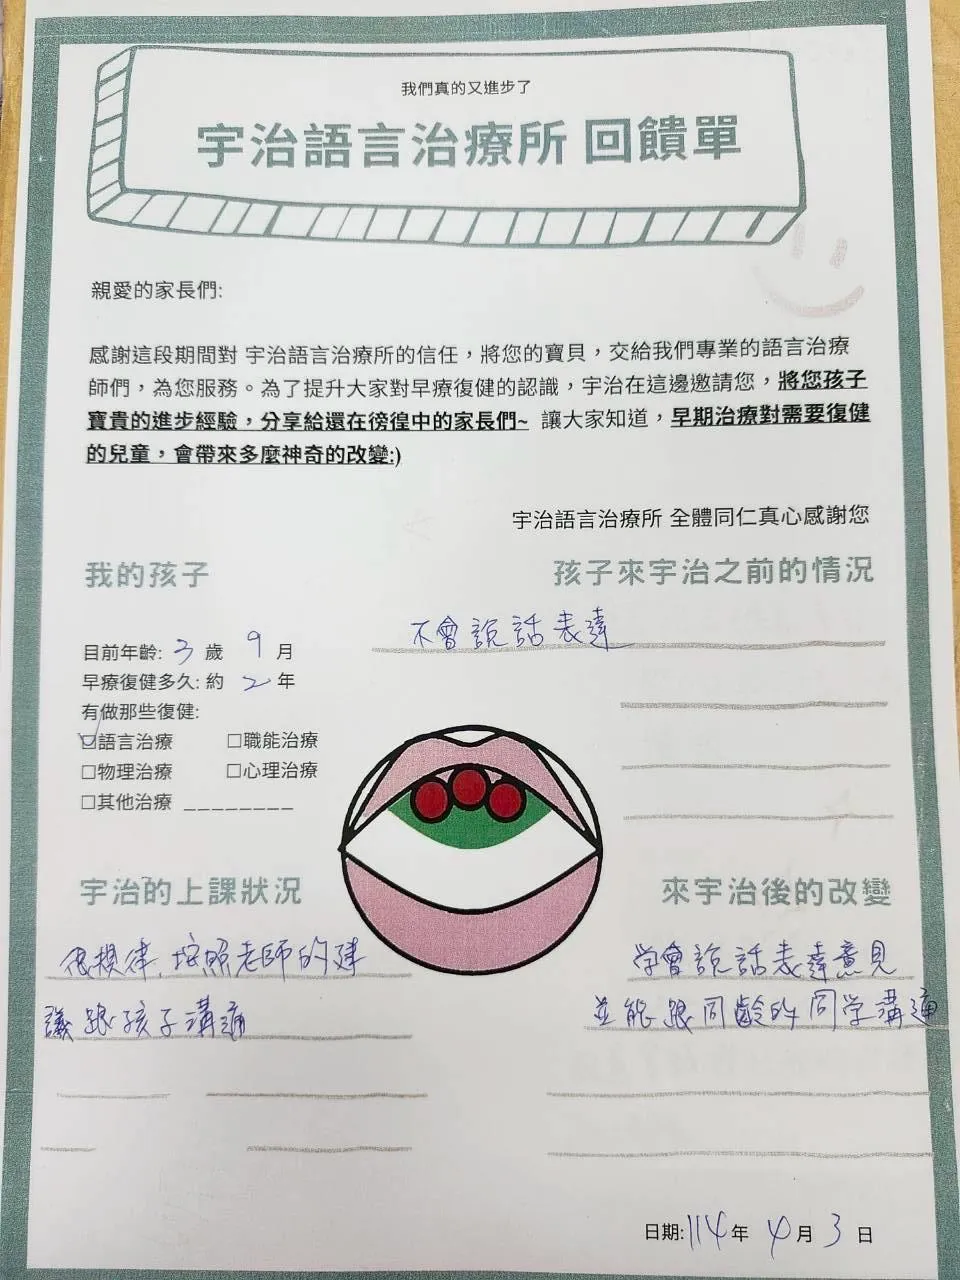 我們真的又進步了
宇治語言治療所 回饋單
親愛的家長們:
感謝這段期間對 宇治語言治療所的信任，將您的寶貝，交給我們專業的語言治療
師們，為您服務。為了提升大家對早療復健的認識，宇治在這邊邀請您，將您孩子
寶貴的進步經驗，分享給還在徬徨中的家長們~ 讓大家知道，早期治療對需要復健
的兒童，會帶來多麼神奇的改變:)
宇治語言治療所 全體同仁真心感謝您
我的孩子
目前年齡: 3 歲 9 月
早療復健多久: 約 2 年
有做那些復健:
☑語言治療 □職能治療
□物理治療 □心理治療
□其他治療 ________
孩子來宇治之前的情況
不會說話表達
宇治的上課狀況
很規律，按照老師的建
議跟孩子溝通
來宇治後的改變
学會說話表達意見
並能跟同齡的同学溝通
日期:114年 4月 3 日